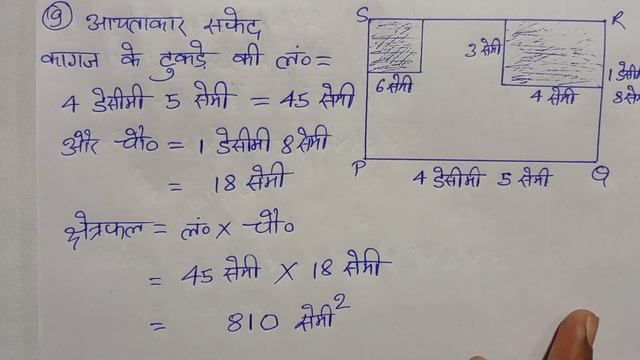 ⑨ आयताकार सफेद
कागज के टुकड़े की लं० =
4 डेसीमी 5 सेमी = 45 सेमी
और चौ० = 1 डेसीमी 8 सेमी
= 18 सेमी
क्षेत्रफल = लं० × चौ०
= 45 सेमी × 18 सेमी
= 810 सेमी²
S
R
3 सेमी
6 सेमी
4 सेमी
1 डेसीमी
8 सेमी
P
Q
4 डेसीमी 5 सेमी